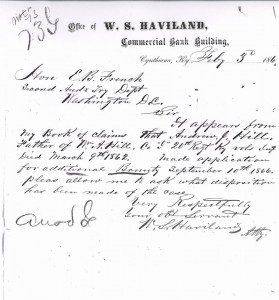 736
Office of W. S. HAVILAND,
Commercial Bank Building,
Cynthiana, Ky, Feby 5th 186
Hon E. B. French
Second Audt Try Dept
Washington D.C.
Sir
It appears from
my Book of claims that Andrew J. Hill.
Father of W. A. Hill. Co I" 20th Regt Ky vols Inf
Died March 9th 1862. Made application
for additional Bounty September 10th 1866.
pleas allow me to ask what disposition
has been made of the case
Very Respectfully
Your Obt Servant
W. S. Haviland
Atty